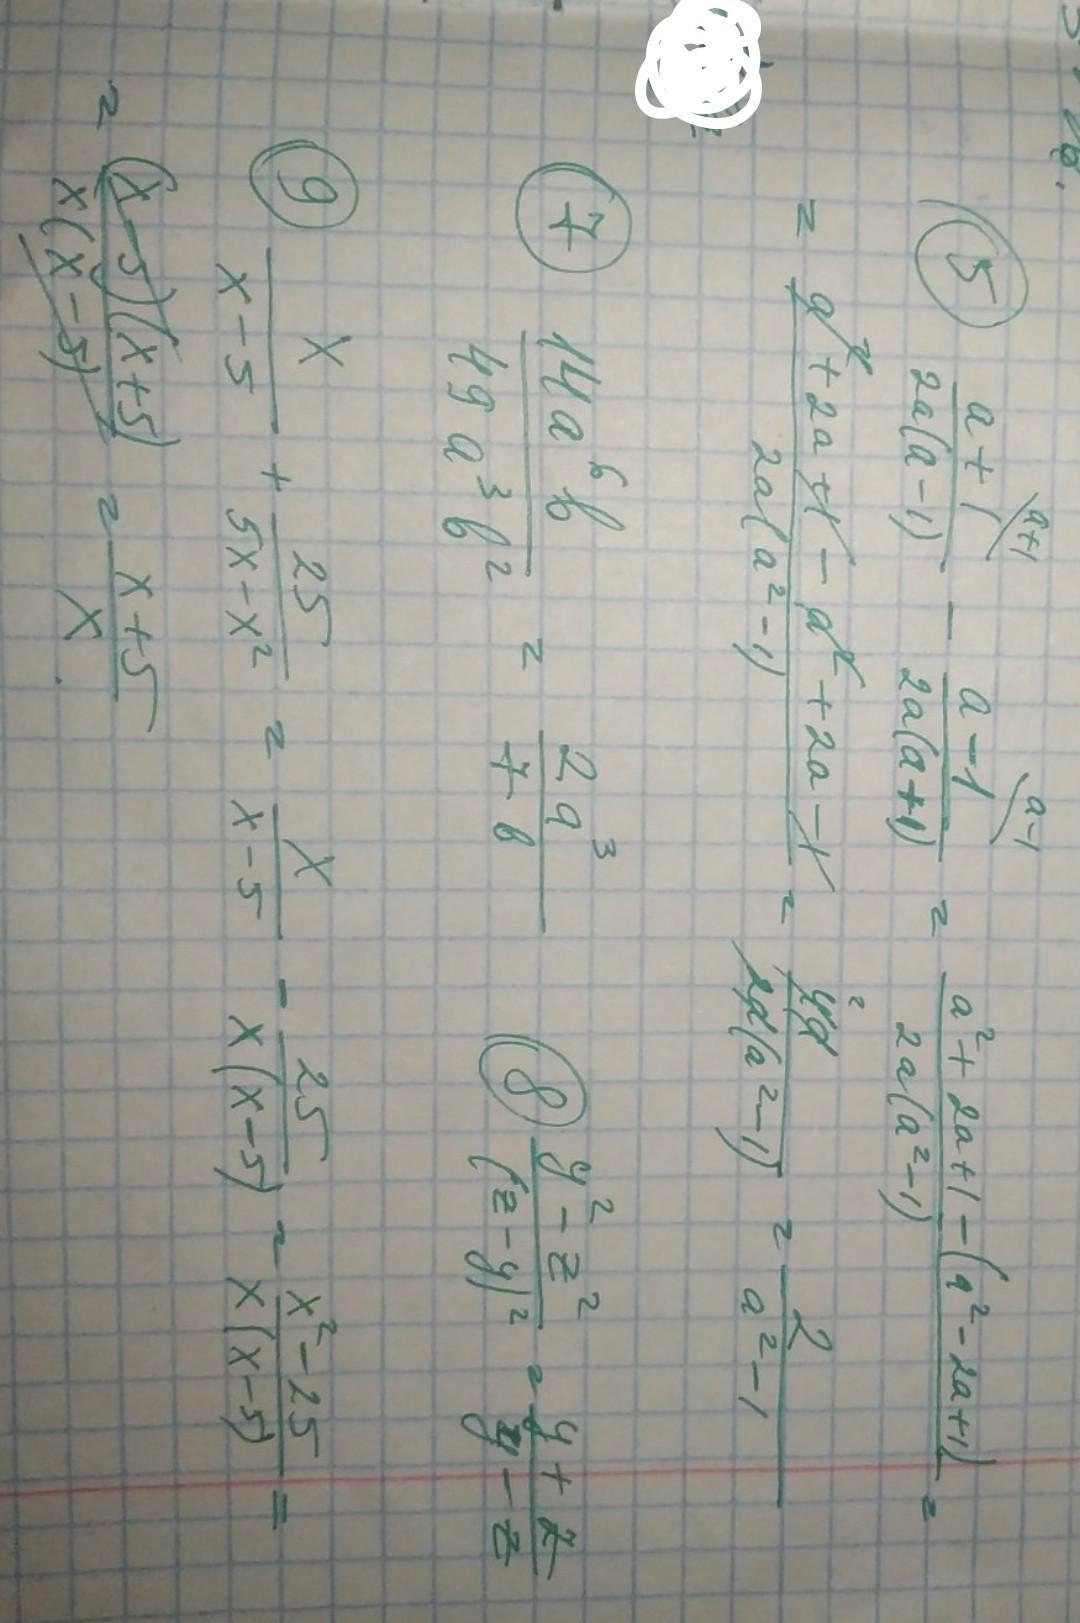 ⑤ \frac{a+1}{2a(a-1)}^{\backslash a+1} - \frac{a-1}{2a(a+1)}^{\backslash a-1} = \frac{a^2+2a+1-(a^2-2a+1)}{2a(a^2-1)} =
= \frac{a^2+2a+1-a^2+2a-1}{2a(a^2-1)} = \frac{4a^2}{2a(a^2-1)} = \frac{2}{a^2-1}
⑦ \frac{14a^6b}{49a^3b^2} = \frac{2a^3}{7b} ⑧ \frac{y^2-z^2}{(z-y)^2} = \frac{y+z}{y-z}
⑨ \frac{x}{x-5} + \frac{25}{5x-x^2} = \frac{x}{x-5} - \frac{25}{x(x-5)} = \frac{x^2-25}{x(x-5)} =
= \frac{(x-5)(x+5)}{x(x-5)} = \frac{x+5}{x}.